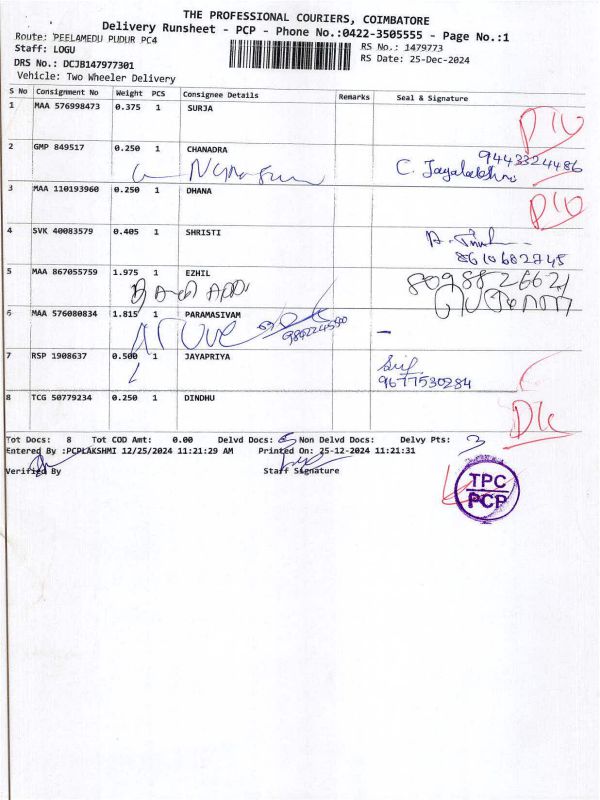 THE PROFESSIONAL COURIERS, COIMBATORE
Delivery Runsheet - PCP - Phone No.:0422-3505555 - Page No.:1
Route: PEELAMEDU PUDUR PC4
RS No.: 1479773
Staff: LOGU
RS Date: 25-Dec-2024
DRS No.: DCJB147977301
Vehicle: Two Wheeler Delivery
S No Consignment No Weight PCS Consignee Details Remarks Seal & Signature
1 MAA 576998473 0.375 1 SURJA
2 GMP 849517 0.250 1 CHANADRA
9443324486
C. Jayalakshmi
3 MAA 110193960 0.250 1 DHANA
4 SVK 40083579 0.405 1 SHRISTI
8610682745
5 MAA 867055759 1.975 1 EZHIL
8098826621
6 MAA 576080834 1.815 1 PARAMASIVAM
7 RSP 1908637 0.500 1 JAYAPRIYA
9677530284
8 TCG 50779234 0.250 1 DINDHU
D/c
Tot Docs: 8 Tot COD Amt: 0.00 Delvd Docs: 5 Non Delvd Docs: Delvy Pts: 3
Entered By :PCPLAKSHMI 12/25/2024 11:21:29 AM Printed On: 25-12-2024 11:21:31
Verified By Staff Signature
TPC
PCP